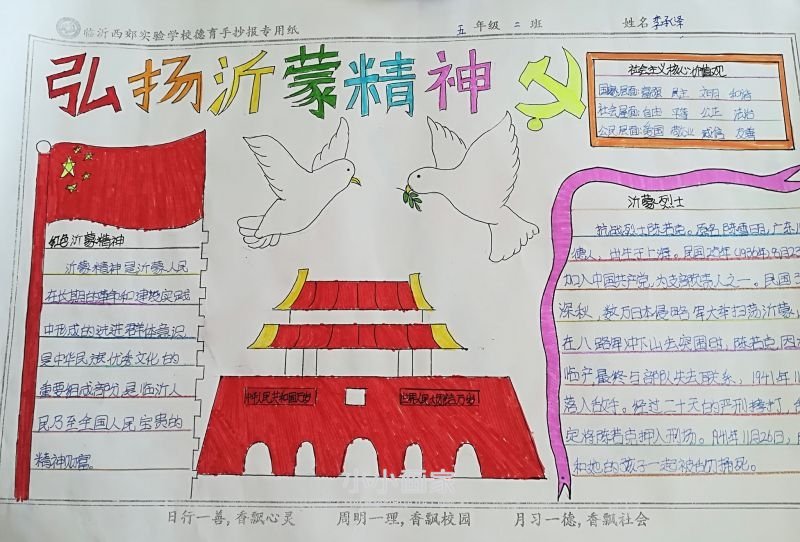 临沂西郊实验学校德育手抄报专用纸
五年级二班
姓名 李承泽
弘扬沂蒙精神
社会主义核心价值观
国家层面:富强 民主 文明 和谐
社会层面:自由 平等 公正 法治
公民层面:爱国 敬业 诚信 友善
红色沂蒙精神
沂蒙精神是沂蒙人民
在长期的革命和建设实践
中形成的先进群体意识
是中华民族优秀文化的
重要组成部分是临沂人
民乃至全国人民宝贵的
精神财富。
中华人民共和国万岁
世界人民大团结万岁
沂蒙烈士
抗战烈士陈若克。原名陈雪明,广东
德人,出生于上海。民国25年(1936年)8月2
加入中国共产党,为支部负责人之一。民国
深秋,数万日本侵略军大举扫荡沂蒙
在八路军冲下山去突围时,陈若克因
临产最终与部队失去联系,1941年11
落入敌手。经过二十天的严刑拷打,
定将陈若克押入刑场。1941年11月26日,
和她的孩子一起被 捅死。
小小画家
日行一善,香飘心灵 周明一理,香飘校园 月习一德,香飘社会